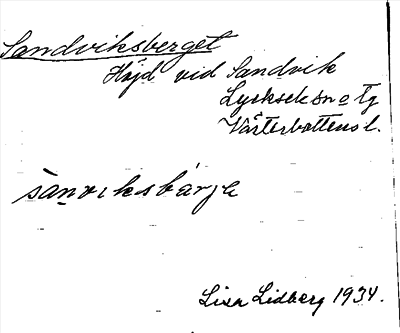 Sandviksberget
Höjd vid Sandvik
Lycksele sn o tg
Västerbottens l.
sanviksbärje
Lisa Lidberg 1934.